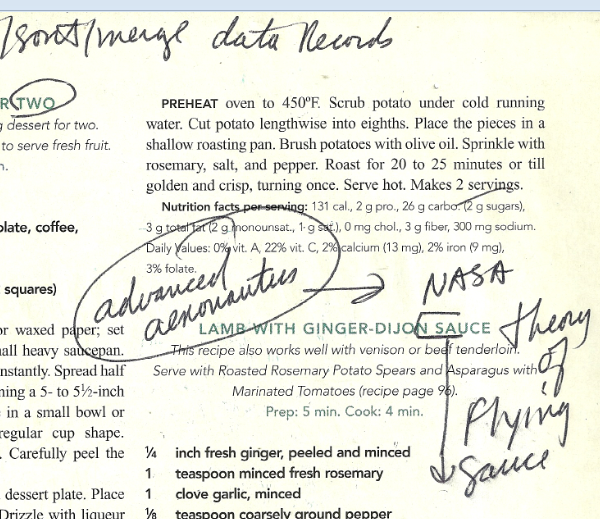 /sort/merge data Records
R TWO
g dessert for two.
to serve fresh fruit.
n.
olate, coffee,
squares)
or waxed paper; set
all heavy saucepan.
nstantly. Spread half
ning a 5- to 5½-inch
e in a small bowl or
regular cup shape.
. Carefully peel the
dessert plate. Place
Drizzle with liqueur
PREHEAT oven to 450°F. Scrub potato under cold running
water. Cut potato lengthwise into eighths. Place the pieces in a
shallow roasting pan. Brush potatoes with olive oil. Sprinkle with
rosemary, salt, and pepper. Roast for 20 to 25 minutes or till
golden and crisp, turning once. Serve hot. Makes 2 servings.
Nutrition facts per serving: 131 cal., 2 g pro., 26 g carbo. (2 g sugars),
3 g total fat (2 g monounsat., 1 g sat.), 0 mg chol., 3 g fiber, 300 mg sodium.
Daily Values: 0% vit. A, 22% vit. C, 2% calcium (13 mg), 2% iron (9 mg),
3% folate.
advanced
aeronautics
NASA
LAMB WITH GINGER-DIJON SAUCE
theory
of
Flying
Sauce
This recipe also works well with venison or beef tenderloin.
Serve with Roasted Rosemary Potato Spears and Asparagus with
Marinated Tomatoes (recipe page 96).
Prep: 5 min. Cook: 4 min.
¼ inch fresh ginger, peeled and minced
1 teaspoon minced fresh rosemary
1 clove garlic, minced
⅛ teaspoon coarsely ground pepper